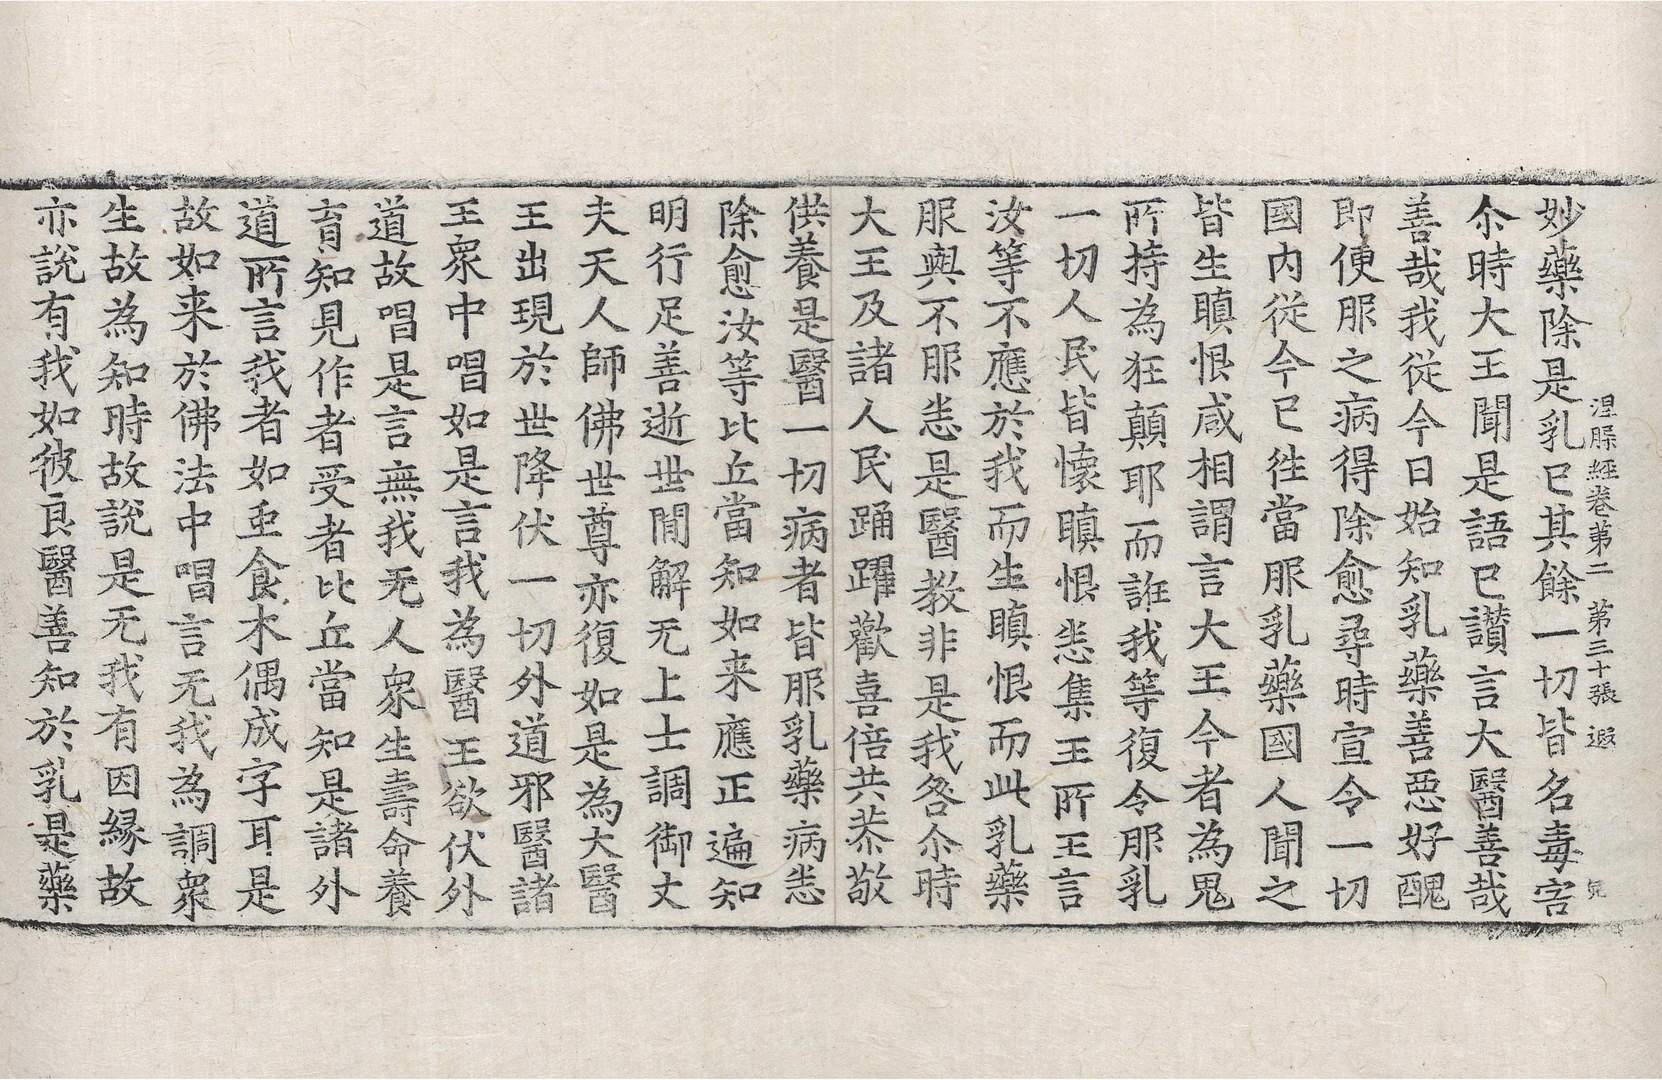 涅槃經卷苐二　苐三十張　遐
妙藥除是乳已其餘一切皆名毒害
尒時大王聞是語已讃言大醫善哉
善哉我從今日始知乳藥善惡好醜
即便服之病得除愈尋時宣令一切
國内從今已往當服乳藥國人聞之
皆生瞋恨咸相謂言大王今者為鬼
所持為狂顛耶而誑我等復令服乳
一切人民皆懷瞋恨悉集王所王言
汝等不應於我而生瞋恨而此乳藥
服與不服悉是醫教非是我咎尒時
大王及諸人民踊躍歡喜倍共恭敬
供養是醫一切病者皆服乳藥病悉
除愈汝等比丘當知如来應正遍知
明行足善逝世間解无上士調御丈
夫天人師佛世尊亦復如是為大醫
王出現於世降伏一切外道邪醫諸
王衆中唱如是言我為醫王欲伏外
道故唱是言無我无人衆生壽命養
育知見作者受者比丘當知是諸外
道所言我者如虫食木偶成字耳是
故如来於佛法中唱言无我為調衆
生故為知時故說是无我有因縁故
亦說有我如彼良醫善知於乳是藥